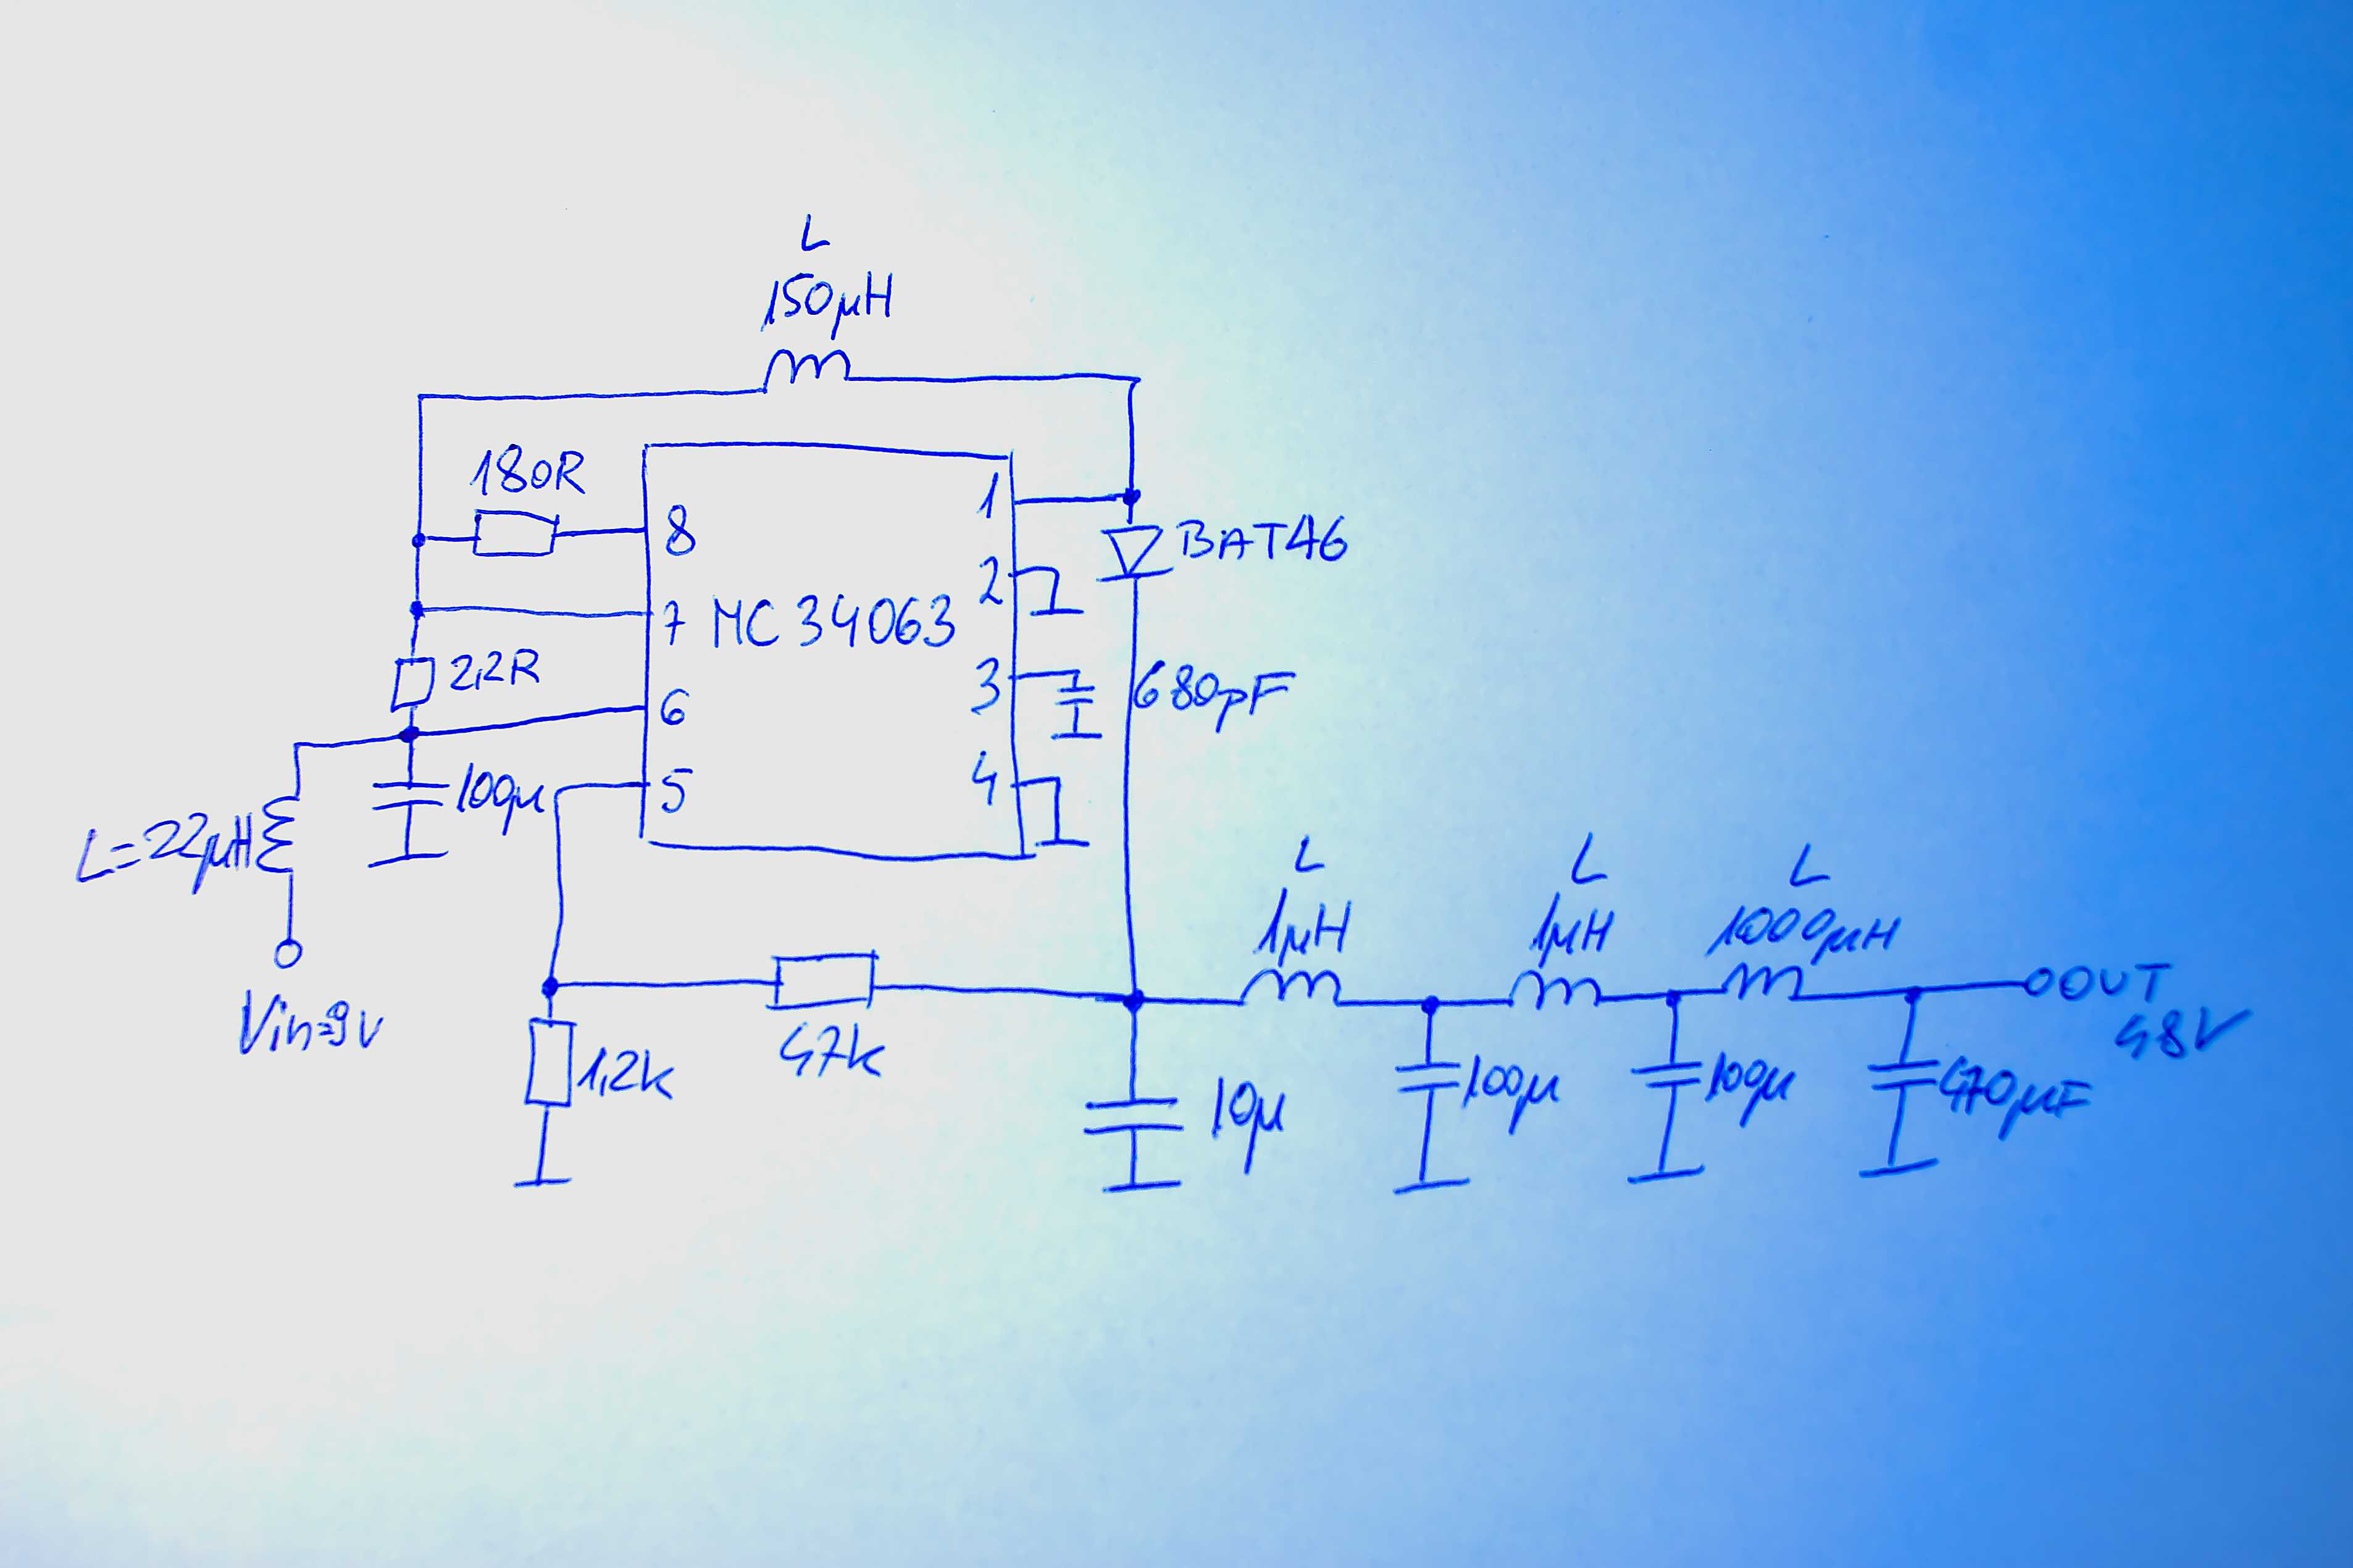 L
150μH
180R
8
1
BAT46
2
7 MC 34063
2,2R
3
680pF
6
100μ
5
4
L=22μH
L
1μH
L
1μH
L
1000μH
Vin=9V
47k
1,2k
OUT
48V
10μ
100μ
100μ
470μF